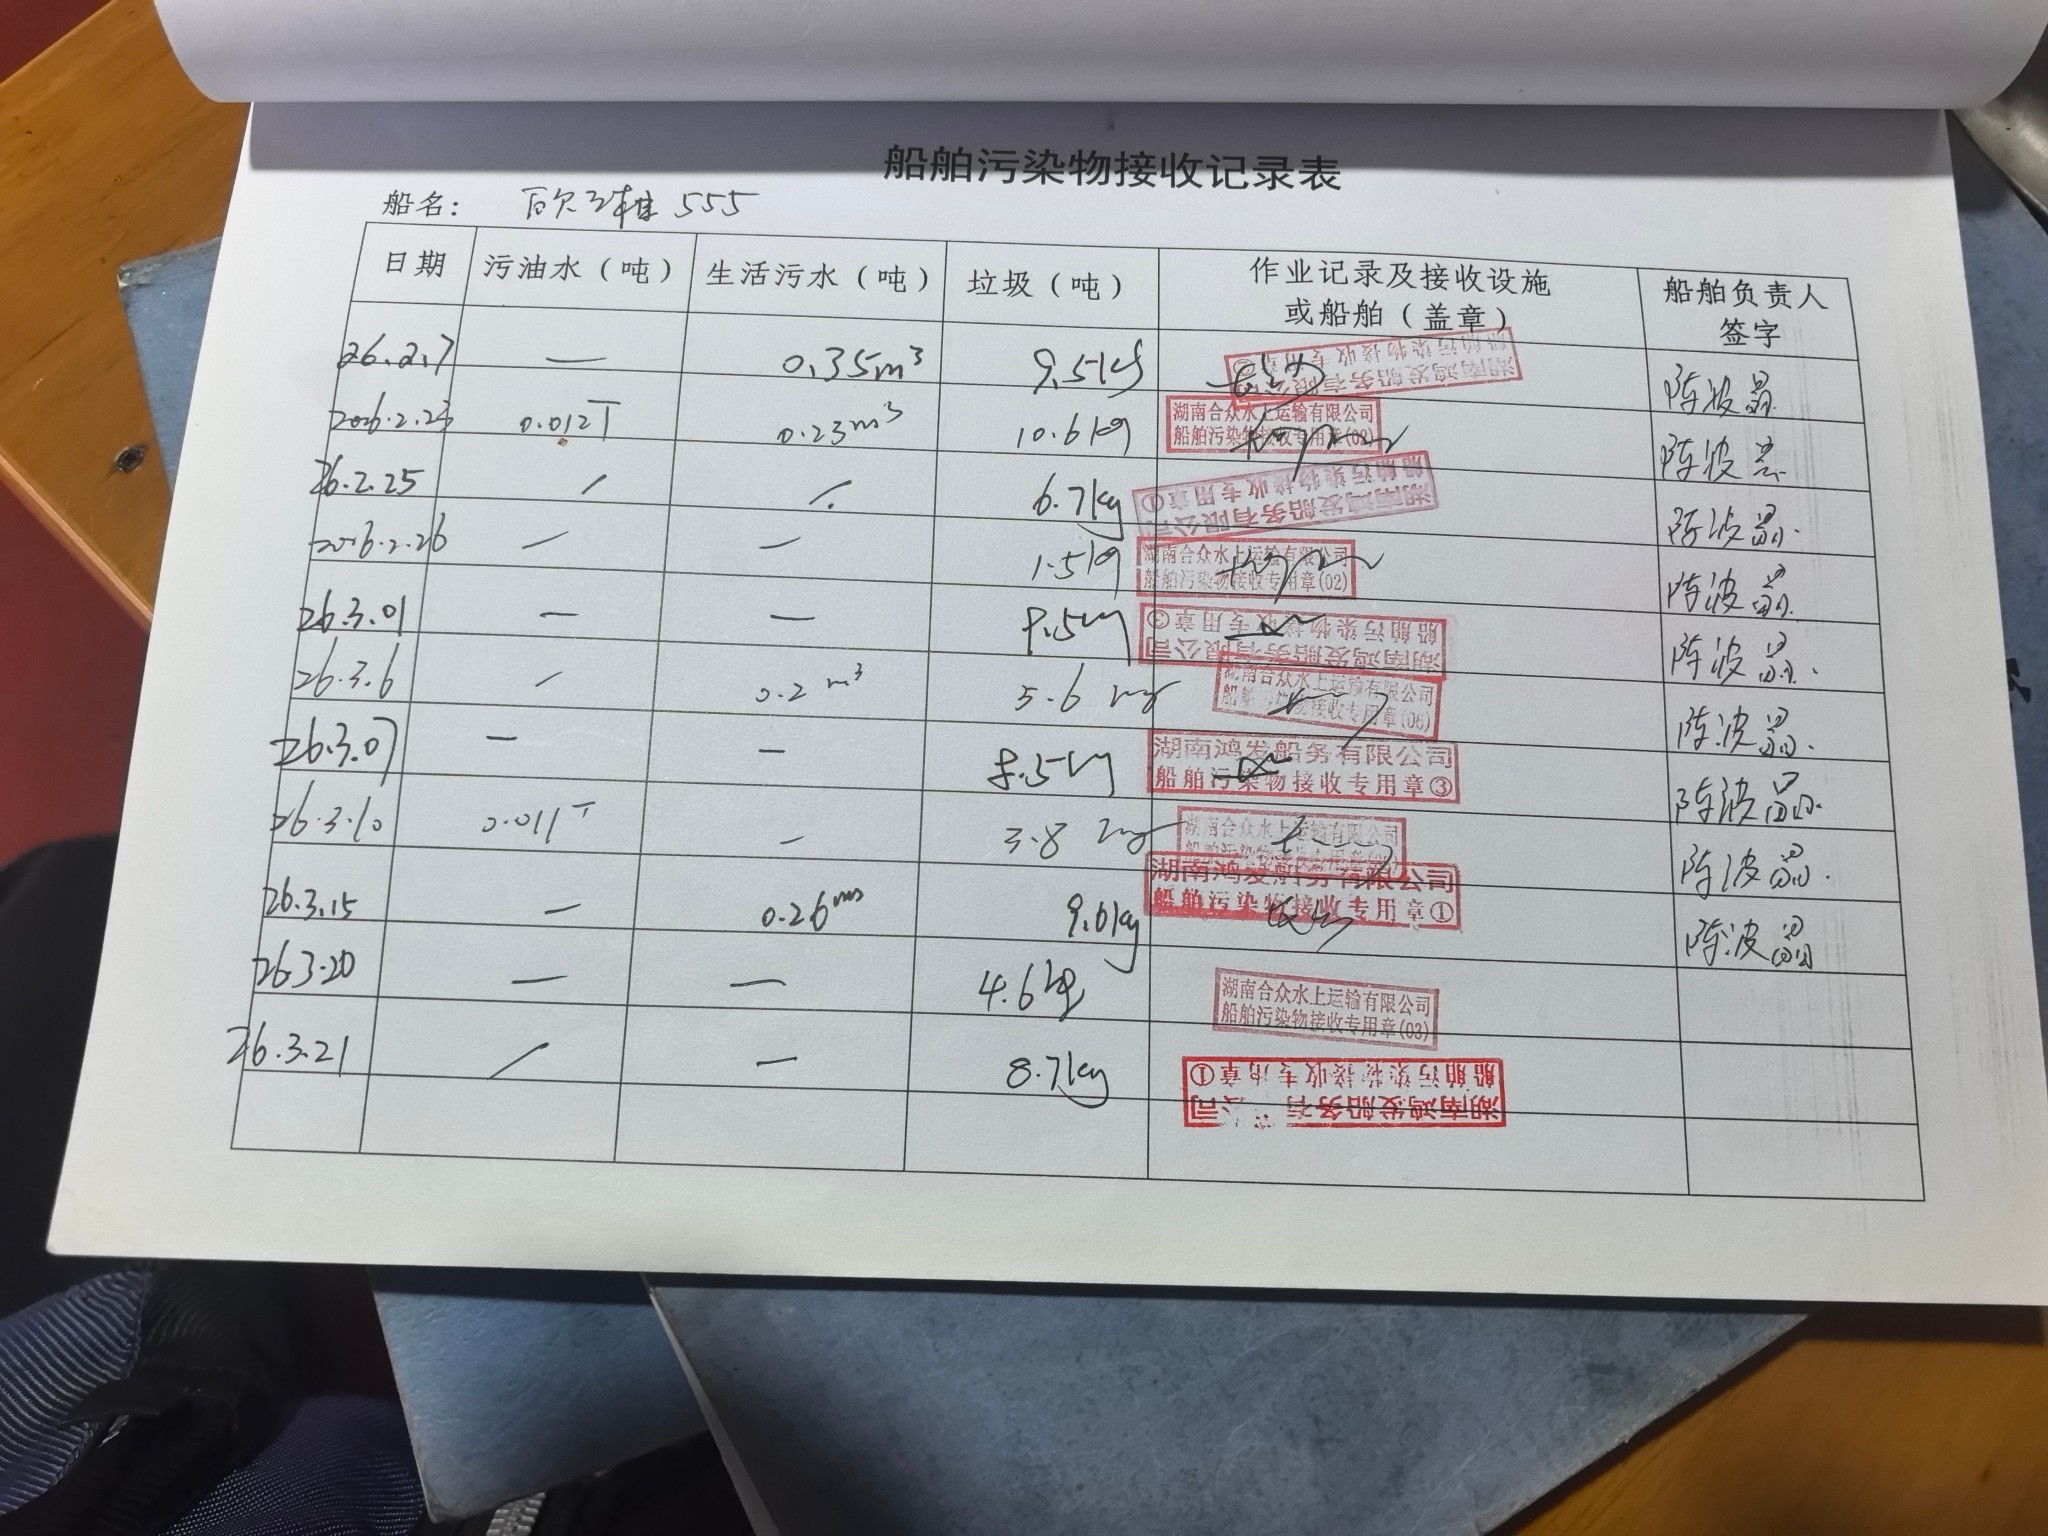 船舶污染物接收记录表
船名： 555
日期 污油水（吨） 生活污水（吨） 垃圾（吨） 作业记录及接收设施或船舶（盖章） 船舶负责人签字
26.2.7 — 0.35m³ 9.5kg 湖南鸿发船务有限公司 船舶污染物接收专用章 陈波
2026.2.23 0.012T 0.23m³ 10.6kg 湖南合众水上运输有限公司 船舶污染物接收专用章(02) 陈波
26.2.25 / / 6.7kg 湖南鸿发船务有限公司 船舶污染物接收专用章① 陈波
2026.2.26 — — 1.5kg 湖南合众水上运输有限公司 船舶污染物接收专用章(02) 陈波
26.3.01 — — 湖南鸿发船务有限公司 船舶污染物接收专用章③ 陈波
26.3.6 / 0.2 m³ 5.6 湖南合众水上运输有限公司 船舶污染物接收专用章(06) 陈波
26.3.07 — — 8.5kg 湖南鸿发船务有限公司 船舶污染物接收专用章③ 陈波
26.3.10 0.011T — 3.8 湖南合众水上运输有限公司 陈波
26.3.15 — 0.26m³ 9.6kg 湖南鸿发船务有限公司 船舶污染物接收专用章① 陈波
26.3.20 — — 4.6kg 湖南合众水上运输有限公司 船舶污染物接收专用章(03)
26.3.21 / — 8.7kg 湖南鸿发船务有限公司 船舶污染物接收专用章①